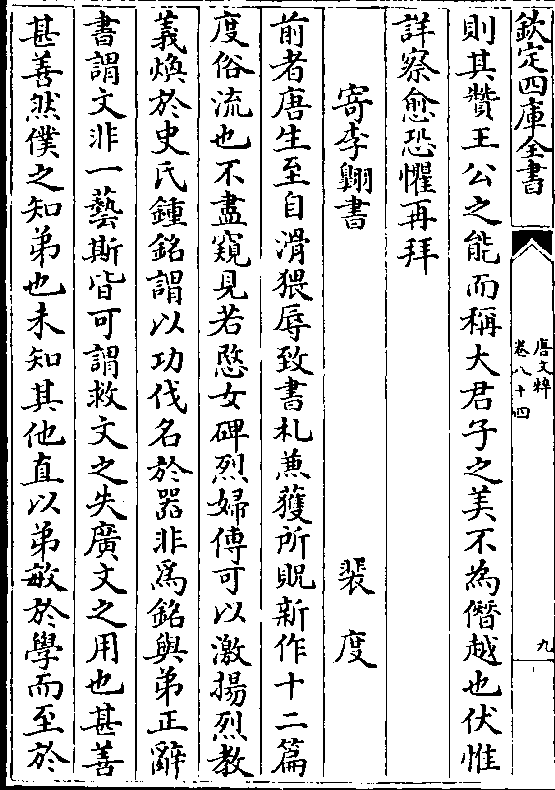 欽定四庫全書
唐文粹
卷八十四
九
則其贊王公之能而稱大君子之美不為僭越也伏惟
詳察愈恐懼再拜
寄李翺書　裴度
前者唐生至自滑猥辱致書札兼獲所貺新作十二篇
度俗流也不盡窺見若愍女碑烈婦傳可以激揚烈教
義煥於史氏鍾銘謂以功伐名於器非爲銘與弟正辭
書謂文非一藝斯皆可謂救文之失廣文之用也甚善
甚善然僕之知弟也未知其他直以弟敏於學而至於